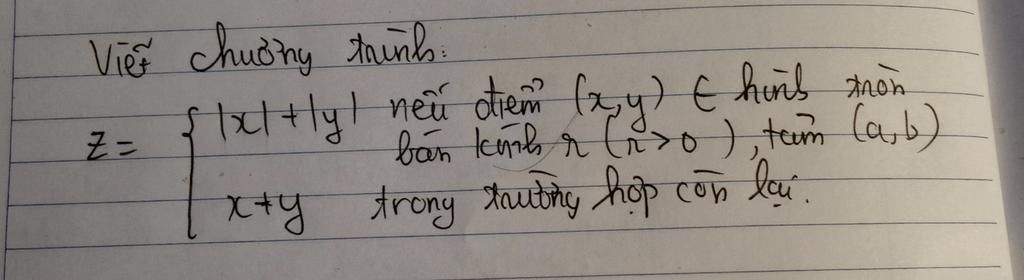 Viết chương trình:
z = { |x| + |y| nếu điểm (x,y) ∈ hình tròn
bán kính r (r > 0), tâm (a,b)
x + y trong trường hợp còn lại.